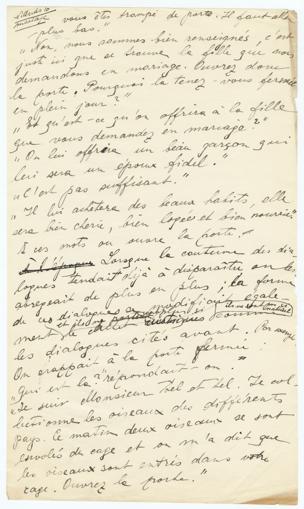 vous êtes trompé de porte. Il faut aller
plus bas."
"Non, nous sommes bien renseignés, c'est
juste ici que se trouve la fille que nous
demandons en mariage. Ouvrez donc
la porte. Pourquoi la tenez-vous fermée
en plein jour?"
"Et qu'est-ce qu'on offrira à la fille
que vous demandez en mariage?"
"On lui offrira un beau garçon qui
leri sera un epoux fidel."
"C'est pas suffisant."
"Il lui achetera des beaux habits, elle
sera bien cherie, bien logée et bien nourrie"
A ces mots on ouvre la porte.
Lorsque la coutume des dia-
logues tendait déjà à disparaitre on les
abregeait de plus en plus; la forme
de ces dialogues se modifiait egale
ment
les dialogues cités avant. On
On frappait à la porte fermée.
"Qui est là?" repondait-on.
"Je suis Monsieur Tel et tel. Je col-
lectionne les oiseaux des différents
pays. Le matin deux oiseaux se sont
envolés du cage et on m'a dit que
les oiseaux sont entrés dans votre
cage. Ouvrez la porte."